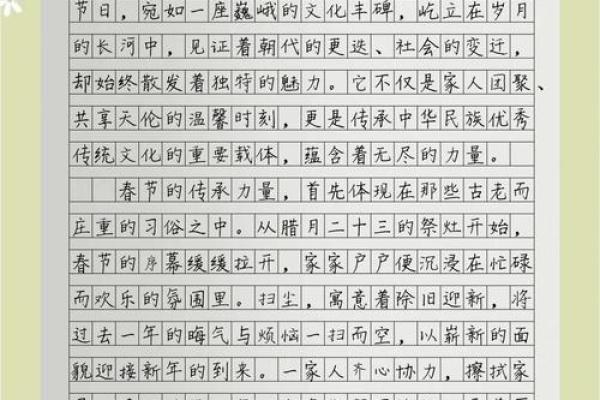 节日，宛如一座巍峨的文化丰碑，屹立在岁月
的长河中，见证着朝代的更迭、社会的变迁，
却始终散发着独特的魅力。它不仅是家人团聚、
共享天伦的温馨时刻，更是传承中华民族优秀
传统文化的重要载体，蕴含着无尽的力量。
春节的传承力量，首先体现在那些古老而
庄重的习俗之中。从腊月二十三的祭灶开始，
春节的序幕缓缓拉开，家家户户便沉浸在忙碌
而欢乐的氛围里。扫尘，寓意着除旧迎新，将
过去一年的晦气与烦恼一扫而空，以崭新的面
貌迎接新年的到来。一家人齐心协力，擦拭家